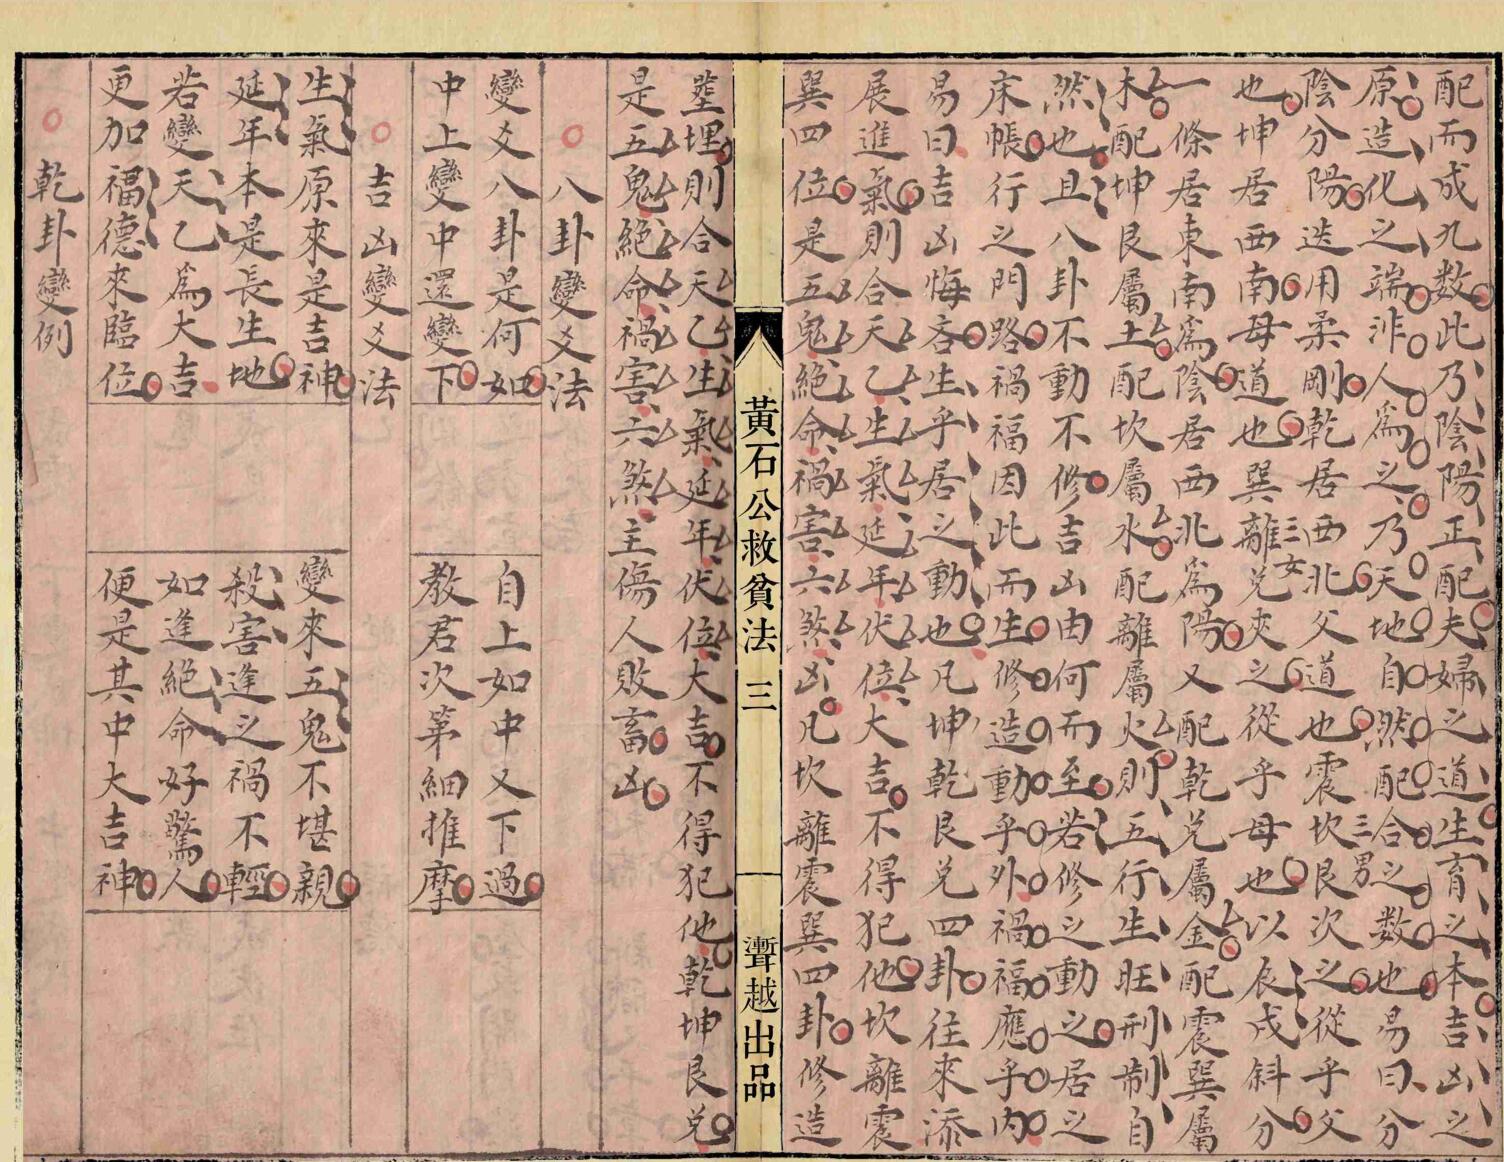 配而成九数此乃陰陽正配夫婦之道生育之本吉凶之
原造化之端非人為之乃天地自然配合之数也易曰分
陰分陽迭用柔剛乾居西北父道也震坎艮三男次之從乎父
也坤居西南母道也巽離兌三女夾之從乎母也以辰戌斜分
一條居東南為陰居西北為陽又配乾兌屬金配震巽屬
木配坤艮屬土配坎屬水配離屬火則五行生旺刑制自
然也且八卦不動不修吉凶由何而至若修之動之居之
床帳行之門路禍福因此而生修造動乎外禍福應乎内
易曰吉凶悔吝生乎居之動也凡坤乾艮兌四卦往來添
展進氣則合天乙生氣延年伏位大吉不得犯他坎離震
巽四位是五鬼絕命禍害六煞凶凡坎離震巽四卦修造
黃石公救貧法 三
漸越出品
塟埋則合天乙生氣延年伏位大吉不得犯他乾坤艮兌
是五鬼絕命禍害六煞主傷人敗畜凶
八卦變爻法
變爻八卦是何如 自上如中又下過
中上變中還變下 教君次第細推摩
吉凶變爻法
生氣原來是吉神 變來五鬼不堪親
延年本是長生地 殺害逢之禍不輕
若變天乙為大吉 如逢絕命好驚人
更加福德來臨位 便是其中大吉神
乾卦變例